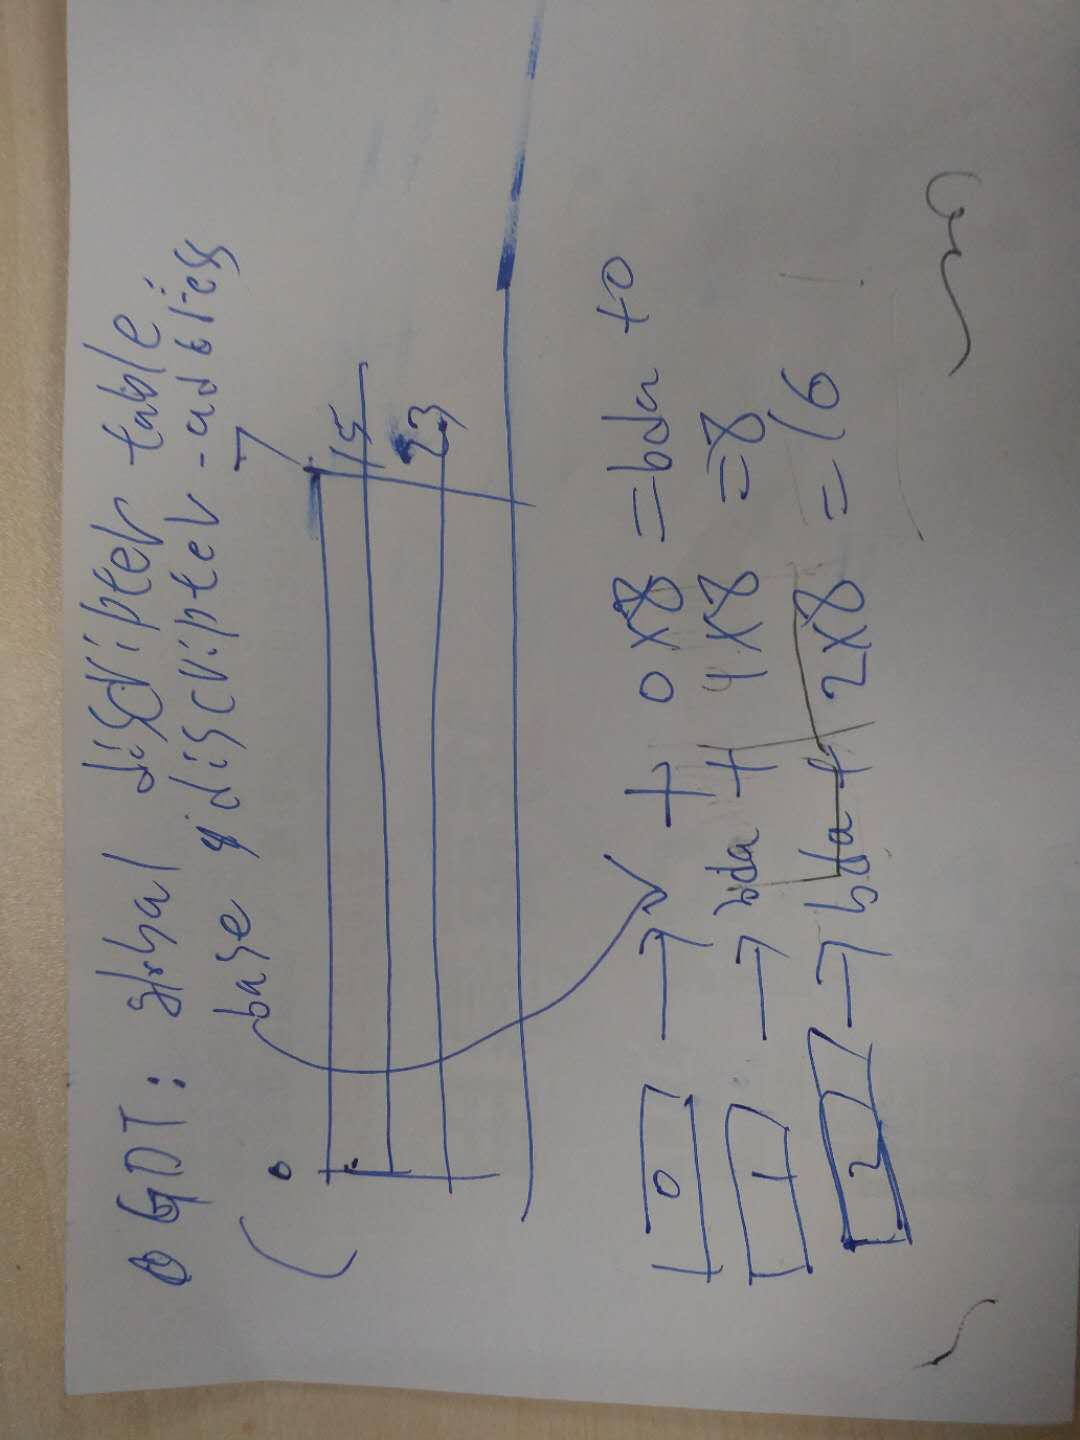 GDT: global discripter table
base discripter-address
0 7
15
23
0 → + 0x8 = bda +0
1 → bda + 1x8 = 8
2 → bda + 2x8 = 16